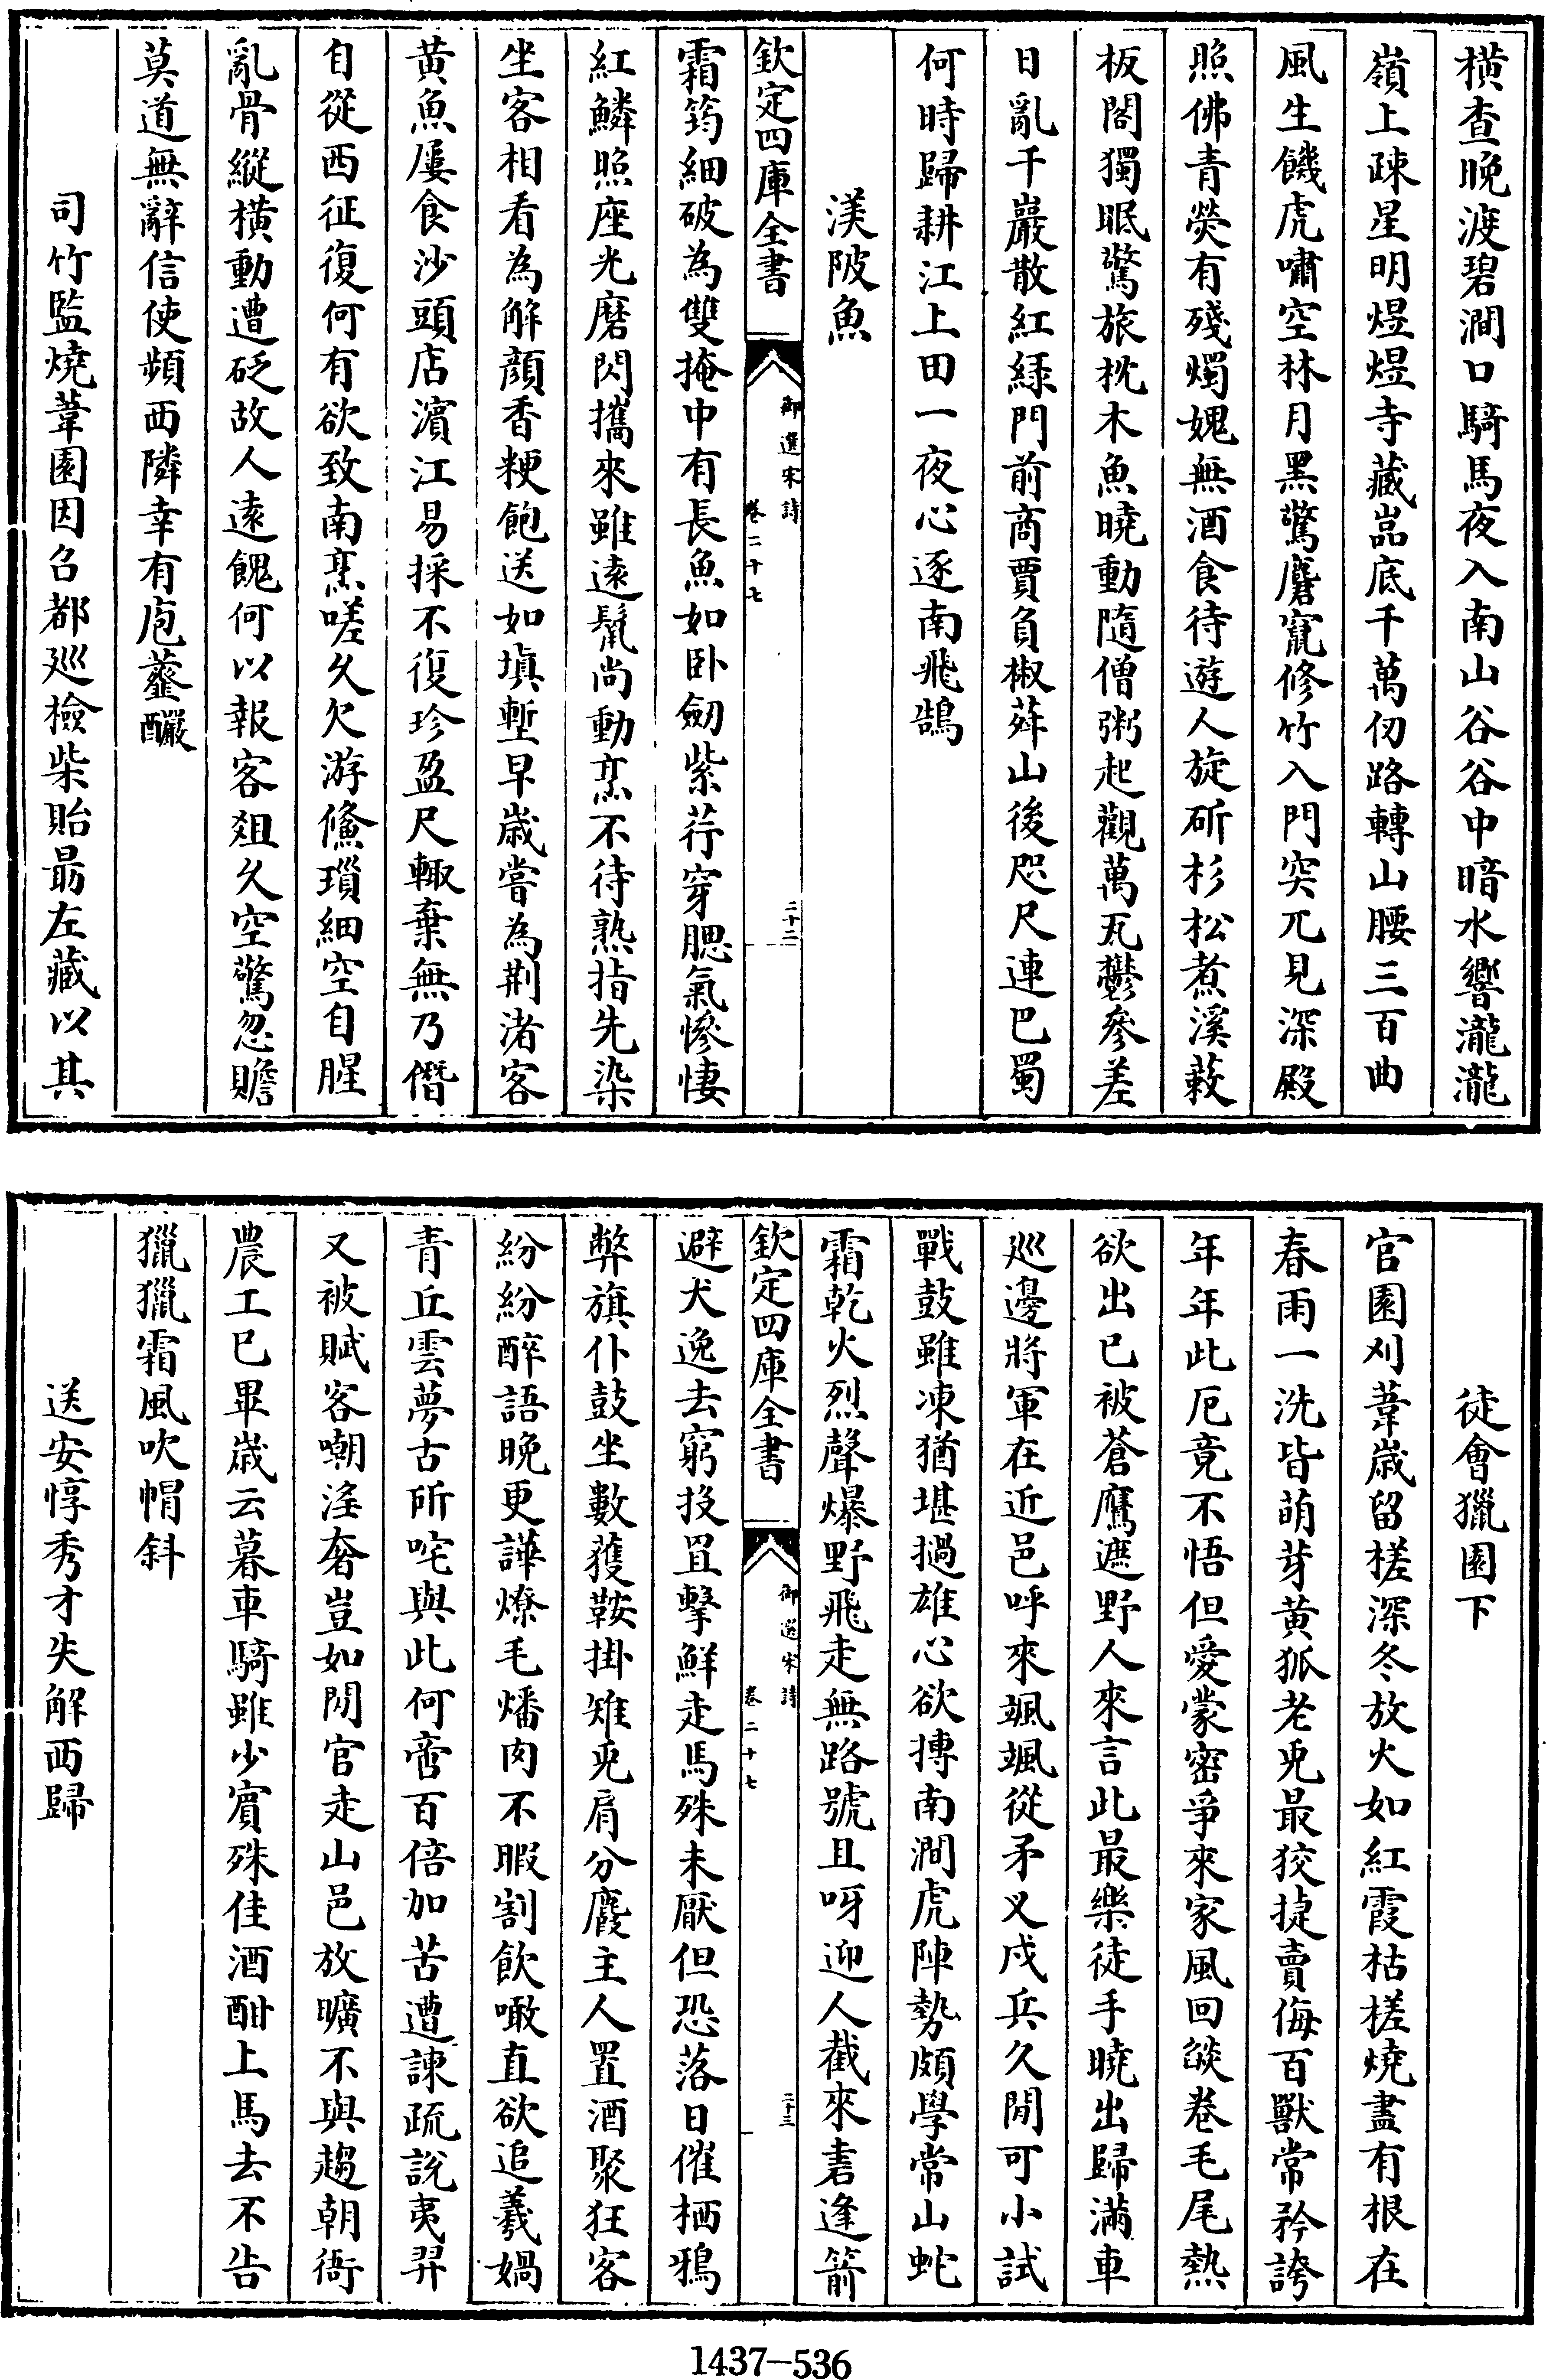 横查晚渡碧澗口騎馬夜入南山谷谷中暗水響瀧瀧
嶺上疎星明煜煜寺藏嵓底千萬仞路轉山腰三百曲
風生饑虎嘯空林月黑驚麏竄修竹入門突兀見深殿
照佛青熒有殘燭媿無酒食待遊人旋斫杉松煮溪蔌
板閣獨眠驚旅枕木魚曉動隨僧粥起觀萬瓦鬱參差
日亂千巖散紅緑門前商賈負椒荈山後咫尺連巴蜀
何時歸耕江上田一夜心逐南飛鵠
渼陂魚
欽定四庫全書
御選宋詩
卷二十七
二十二
霜筠細破為雙掩中有長魚如卧劒紫荇穿腮氣慘悽
紅鱗照座光磨閃攜來雖遠鬛尚動烹不待熟指先染
坐客相看為解顔香粳飽送如填塹早歲嘗為荆渚客
黄魚屢食沙頭店濵江易採不復珍盈尺輙棄無乃僭
自從西征復何有欲致南烹嗟久欠游鯈瑣細空自腥
亂骨縱橫動遭砭故人遠餽何以報客俎久空驚忽贍
莫道無辭信使頻西隣幸有庖虀釅
司竹監燒葦園因召都廵檢柴貽朂左藏以其
徒會獵園下
官園刈葦歲留槎深冬放火如紅霞枯槎燒盡有根在
春雨一洗皆萌芽黄狐老兎最狡捷賣侮百獸常矜誇
年年此厄竟不悟但愛蒙密爭來家風回燄卷毛尾熱
欲出已被蒼鷹遮野人來言此最樂徒手曉出歸滿車
巡邊將軍在近邑呼來颯颯從矛叉戍兵久閒可小試
戰鼓雖凍猶堪撾雄心欲搏南澗虎陣勢頗學常山蛇
霜乾火烈聲爆野飛走無路號且呀迎人截來砉逢箭
欽定四庫全書
御選宋詩
卷二十七
二十三
避犬逸去窮投罝擊鮮走馬殊未厭但恐落日催栖鴉
弊旗仆鼓坐數獲鞍掛雉兎肩分麚主人置酒聚狂客
紛紛醉語晚更譁燎毛燔肉不暇割飲噉直欲追羲媧
青丘雲夢古所咤與此何啻百倍加苦遭諫疏說夷羿
又被賦客嘲淫奢豈如閒官走山邑放曠不與趨朝衙
農工已畢歲云暮車騎雖少賓殊佳酒酣上馬去不告
獵獵霜風吹帽斜
送安惇秀才失解西歸
1437-536